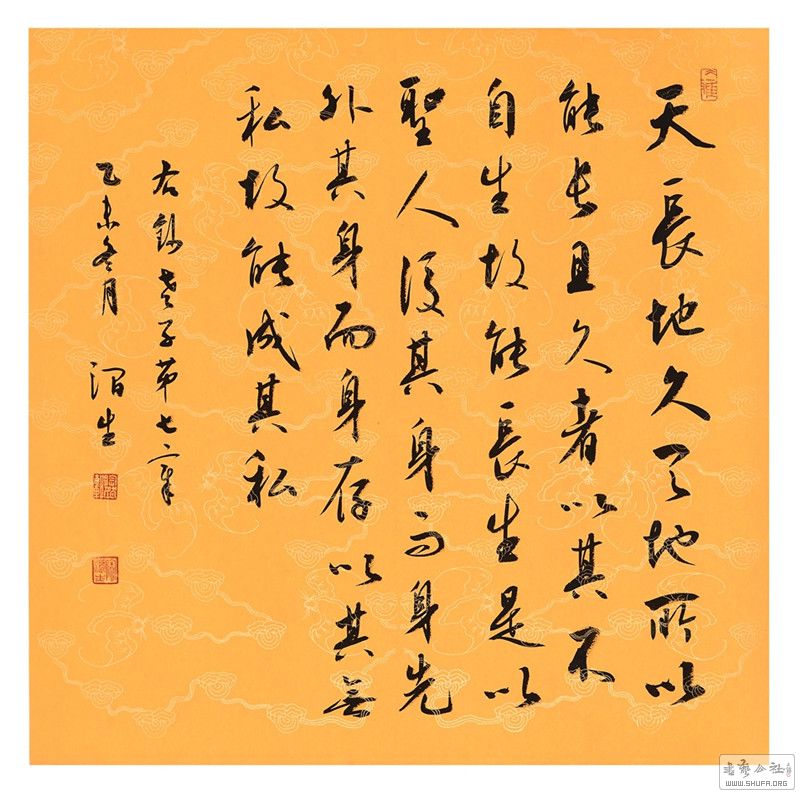 天長地久天地所以
能長且久者以其不
自生故能長生是以
聖人後其身而身先
外其身而身存以其無
私故能成其私
右錄老子第七章
乙未冬月 渭生
书艺公社
WWW.SHUFA.ORG